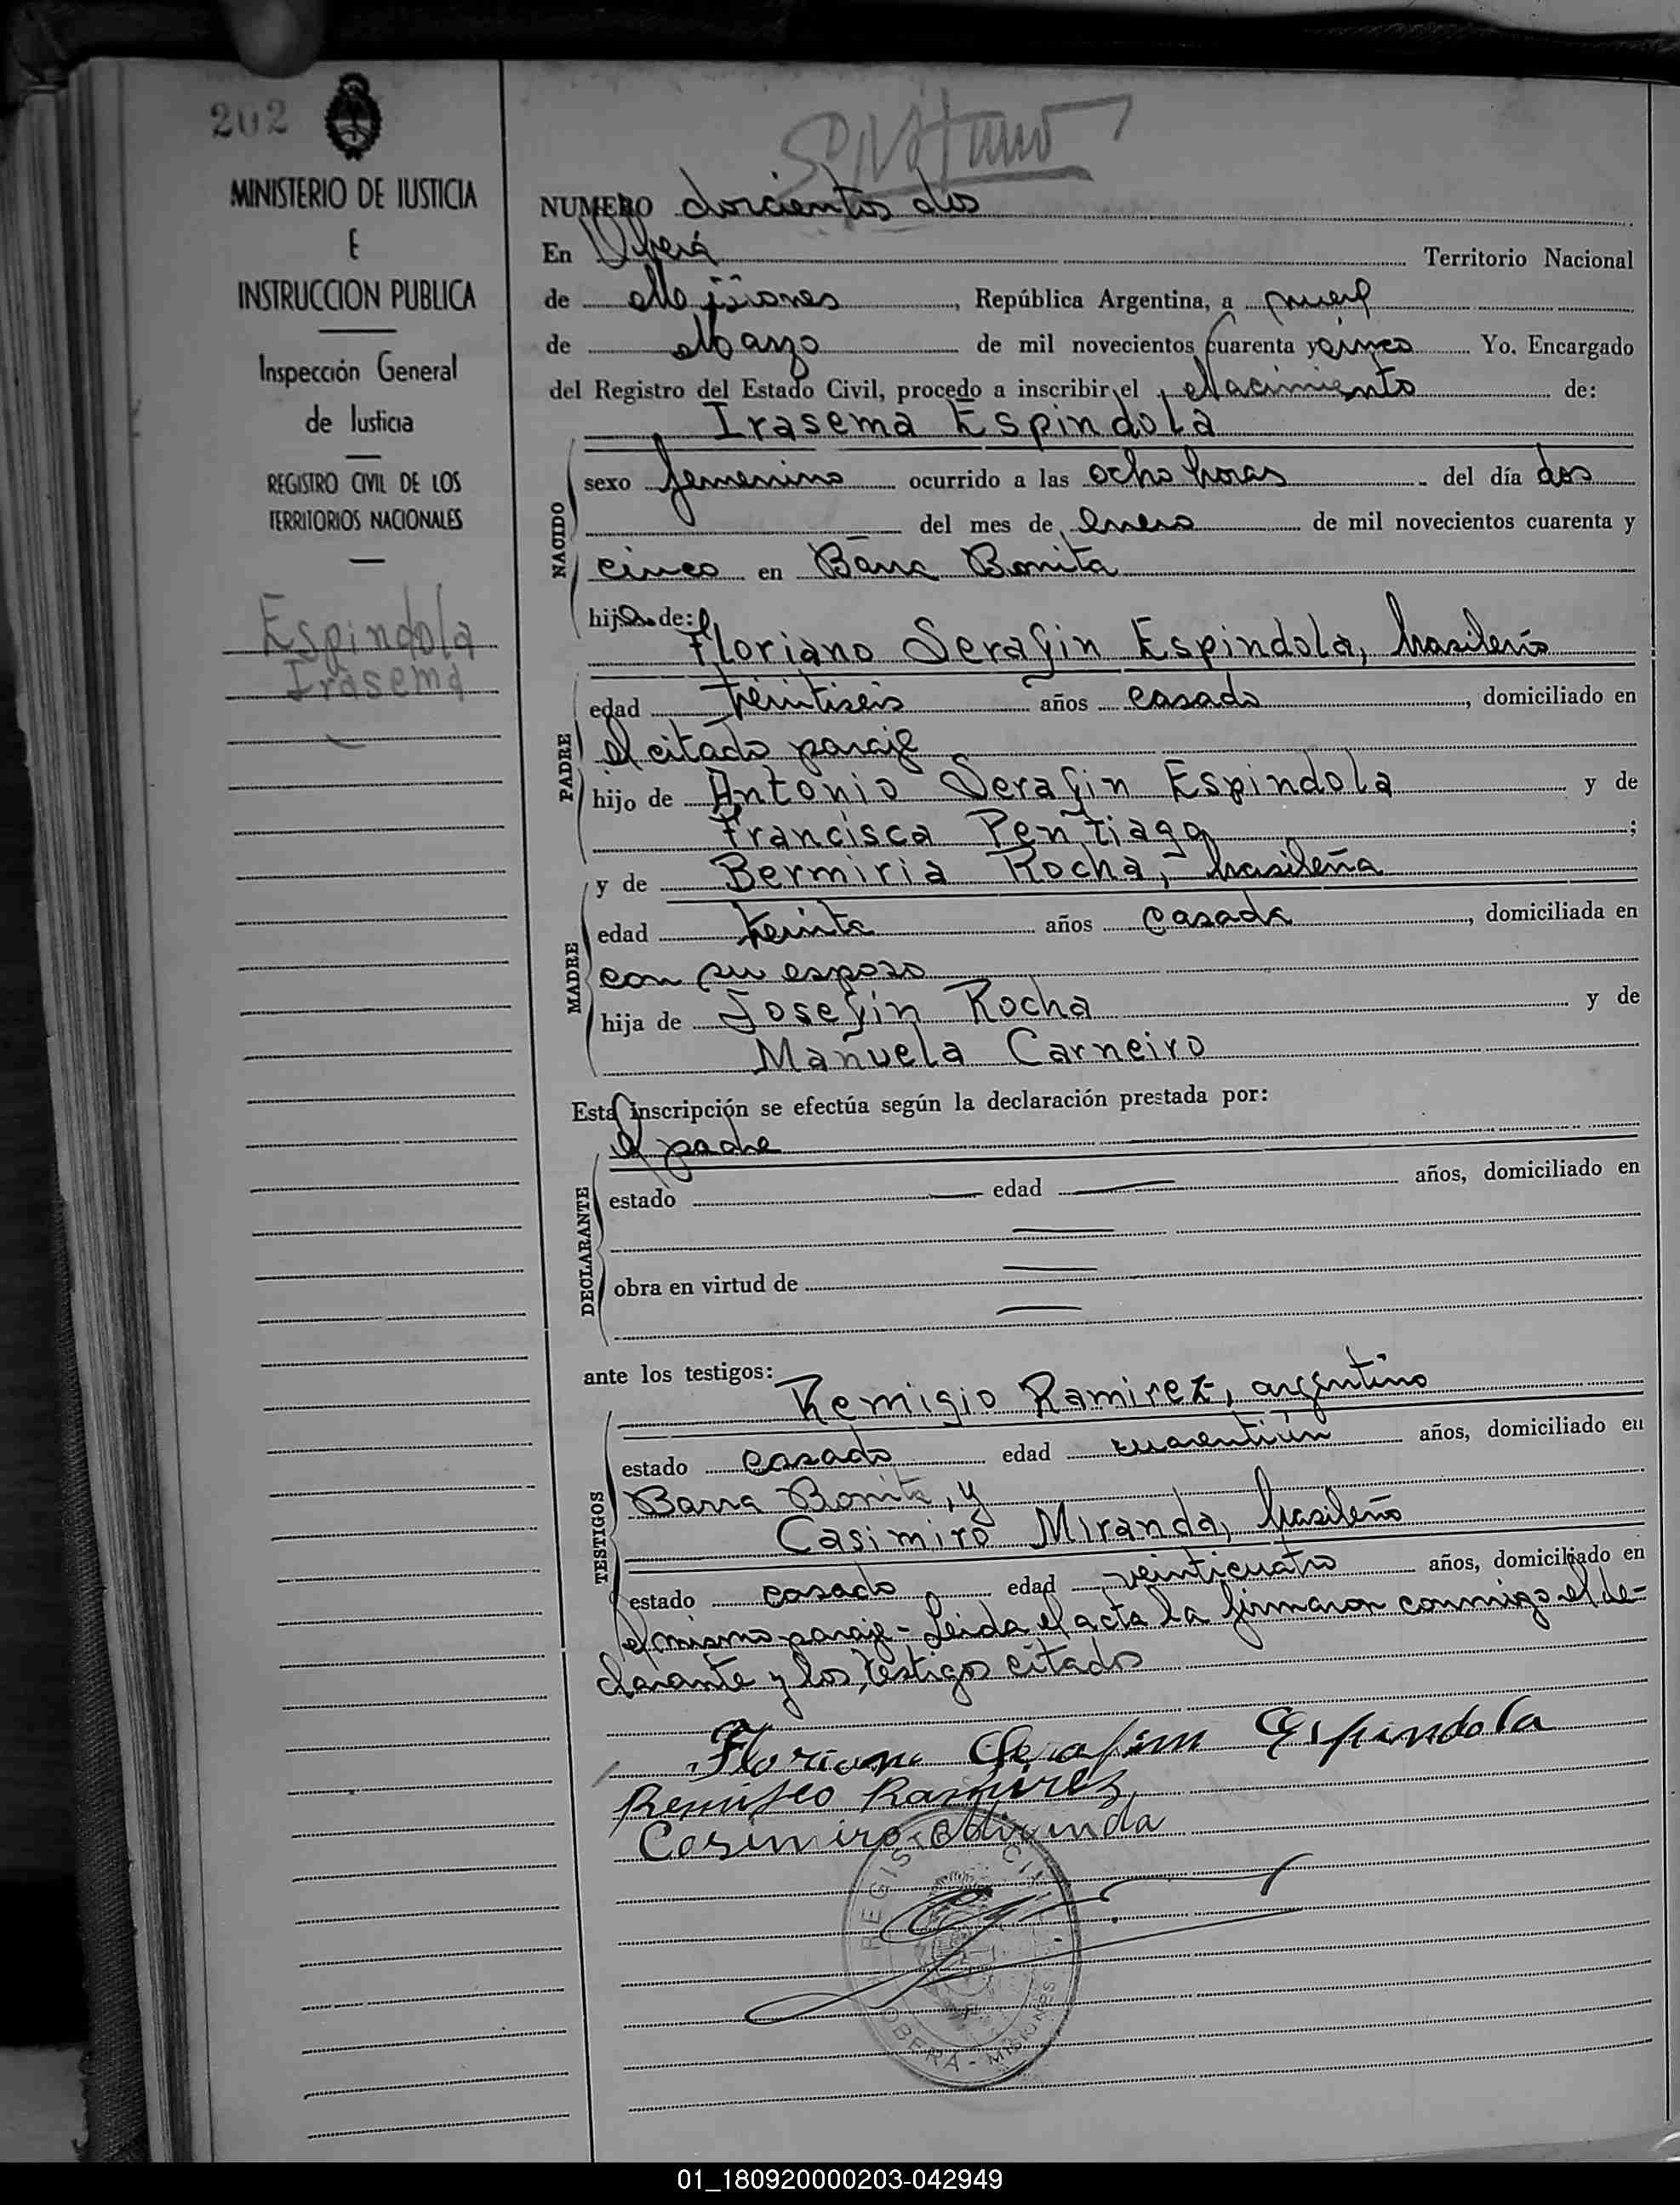 202
MINISTERIO DE JUSTICIA
E
INSTRUCCION PUBLICA
Inspección General
de Justicia
REGISTRO CIVIL DE LOS
TERRITORIOS NACIONALES
Espindola
Irasema
NUMERO doscientos dos
En Oberá Territorio Nacional
de Misiones, República Argentina, a nueve
de Marzo de mil novecientos cuarenta y cinco Yo, Encargado
del Registro del Estado Civil, procedo a inscribir el Nacimiento de:
Irasema Espindola
NACIDO
sexo femenino ocurrido a las ocho horas del día dos
del mes de Enero de mil novecientos cuarenta y
cinco en Barra Bonita
hija de:
Floriano Serafin Espindola, brasileño
PADRE
edad treintiseis años casado, domiciliado en
el citado paraje
hijo de Antonio Serafin Espindola y de
Francisca Pentiago;
y de Bermiria Rocha, brasileña
MADRE
edad treinta años casada, domiciliada en
con su esposo
hija de Josefin Rocha y de
Manuela Carneiro
Esta inscripción se efectúa según la declaración prestada por:
el padre
DECLARANTE
estado — edad — años, domiciliado en
obra en virtud de
ante los testigos:
Remigio Ramirez, argentino
TESTIGOS
estado casado edad cuarentiún años, domiciliado en
Barra Bonita, y
Casimiro Miranda, brasileño
estado casado edad veinticuatro años, domiciliado en
el mismo paraje - Leida el acta la firmaron conmigo el de=
clarante y los testigos citados
Floriano Serafim Espindola
Remiseo Ramirez
Casimiro Miranda
REGISTRO CIVIL
OBERÁ - MISIONES
01_180920000203-042949